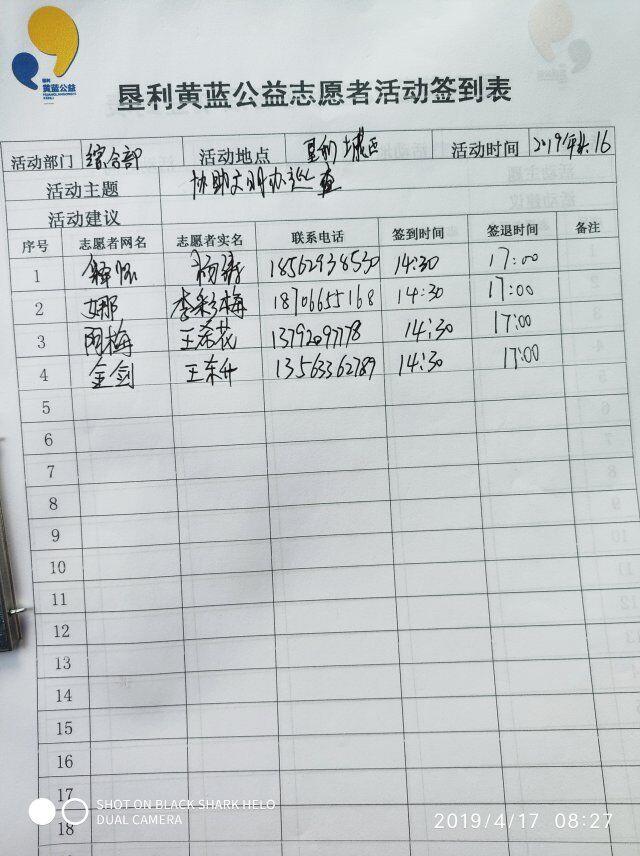 垦利
黄蓝公益
垦利黄蓝公益志愿者活动签到表
活动部门 综合部 活动地点 垦利城区 活动时间 2019年4.16
活动主题 协助文明办巡查
活动建议
序号 志愿者网名 志愿者实名 联系电话 签到时间 签退时间 备注
1 18562938530 14:30 17:00
2 娜 李彩梅 18706655168 14:30 17:00
3 雨梅 王希花 13792097778 14:30 17:00
4 金剑 王东升 13563362789 14:30 17:00
5
6
7
8
9
10
11
12
13
14
15
16
17
18
SHOT ON BLACK SHARK HELO
DUAL CAMERA
2019/4/17 08:27